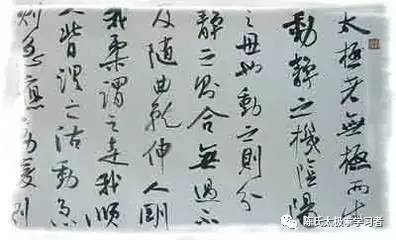 太極者無極而生
動靜之機陰陽
之母也動之則分
靜之則合無過不
及随曲就伸人剛
我柔謂之走我順
人背謂之沾動急
則急應動緩則
陈氏太极拳学习者